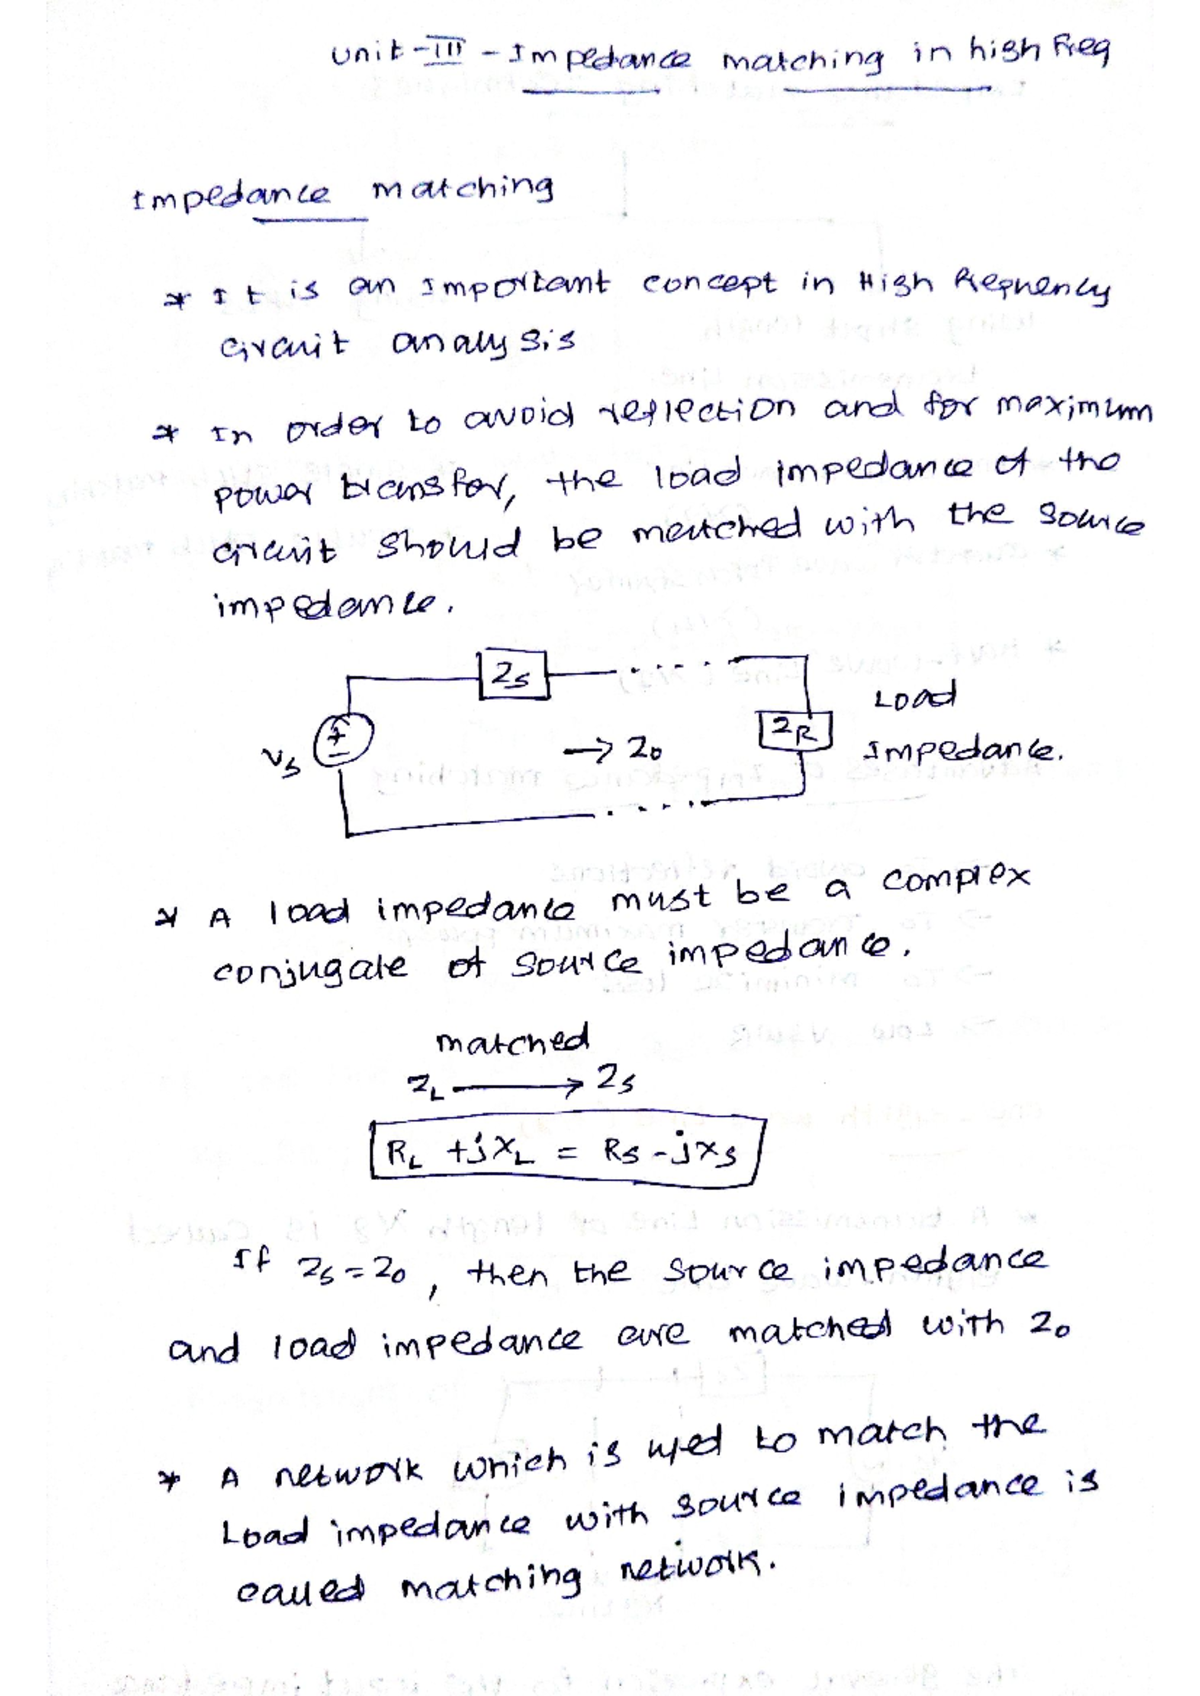 Unit-III - Impedance matching in high Freq
Impedance matching
* It is an Important concept in High Frequency
circuit analysis
* In order to avoid reflection and for maximum
power transfer, the load impedance of the
circuit should be matched with the source
impedance.
Zs
Vs
+
-
→ Z0
ZR
Load
Impedance.
* A load impedance must be a complex
conjugate of source impedance.
matched
ZL → Zs
RL + jXL = Rs - jXs
If Zs = Z0, then the source impedance
and load impedance are matched with Z0
* A network which is used to match the
Load impedance with source impedance is
called matching network.